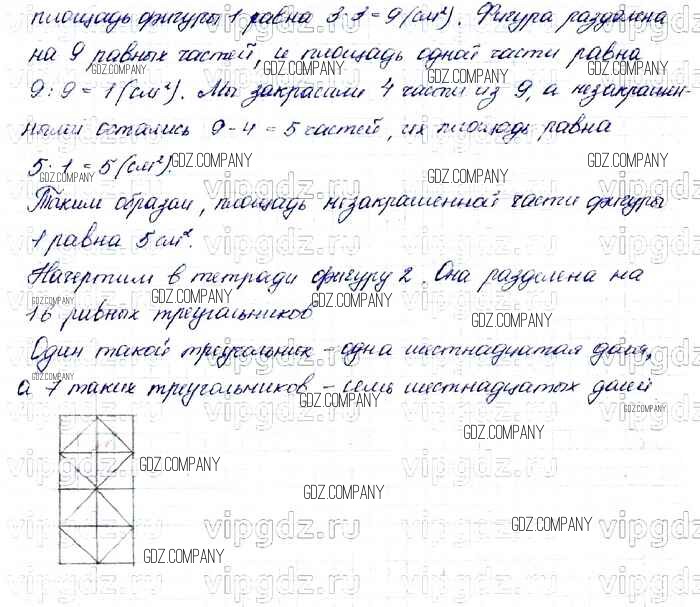 площадь фигуры 1 равна 3·3=9(см²). Фигура разделена
на 9 равных частей, и площадь одной части равна
9:9=1(см²). Мы закрасили 4 части из 9, а незакрашен-
ными остались 9-4=5 частей, их площадь равна
5·1=5(см²).
Таким образом, площадь незакрашенной части фигуры
1 равна 5 см².
Начертим в тетради фигуру 2. Она разделена на
16 равных треугольников
Один такой треугольник - одна шестнадцатая доля,
а 7 таких треугольников - семь шестнадцатых долей
GDZ.COMPANY
vipgdz.ru